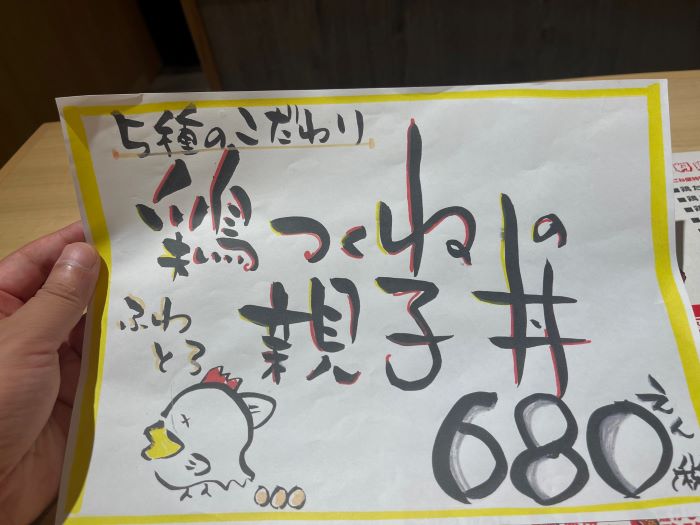 5種のこだわり
鶏つくねの
親子丼
ふわ
とろ
680えん